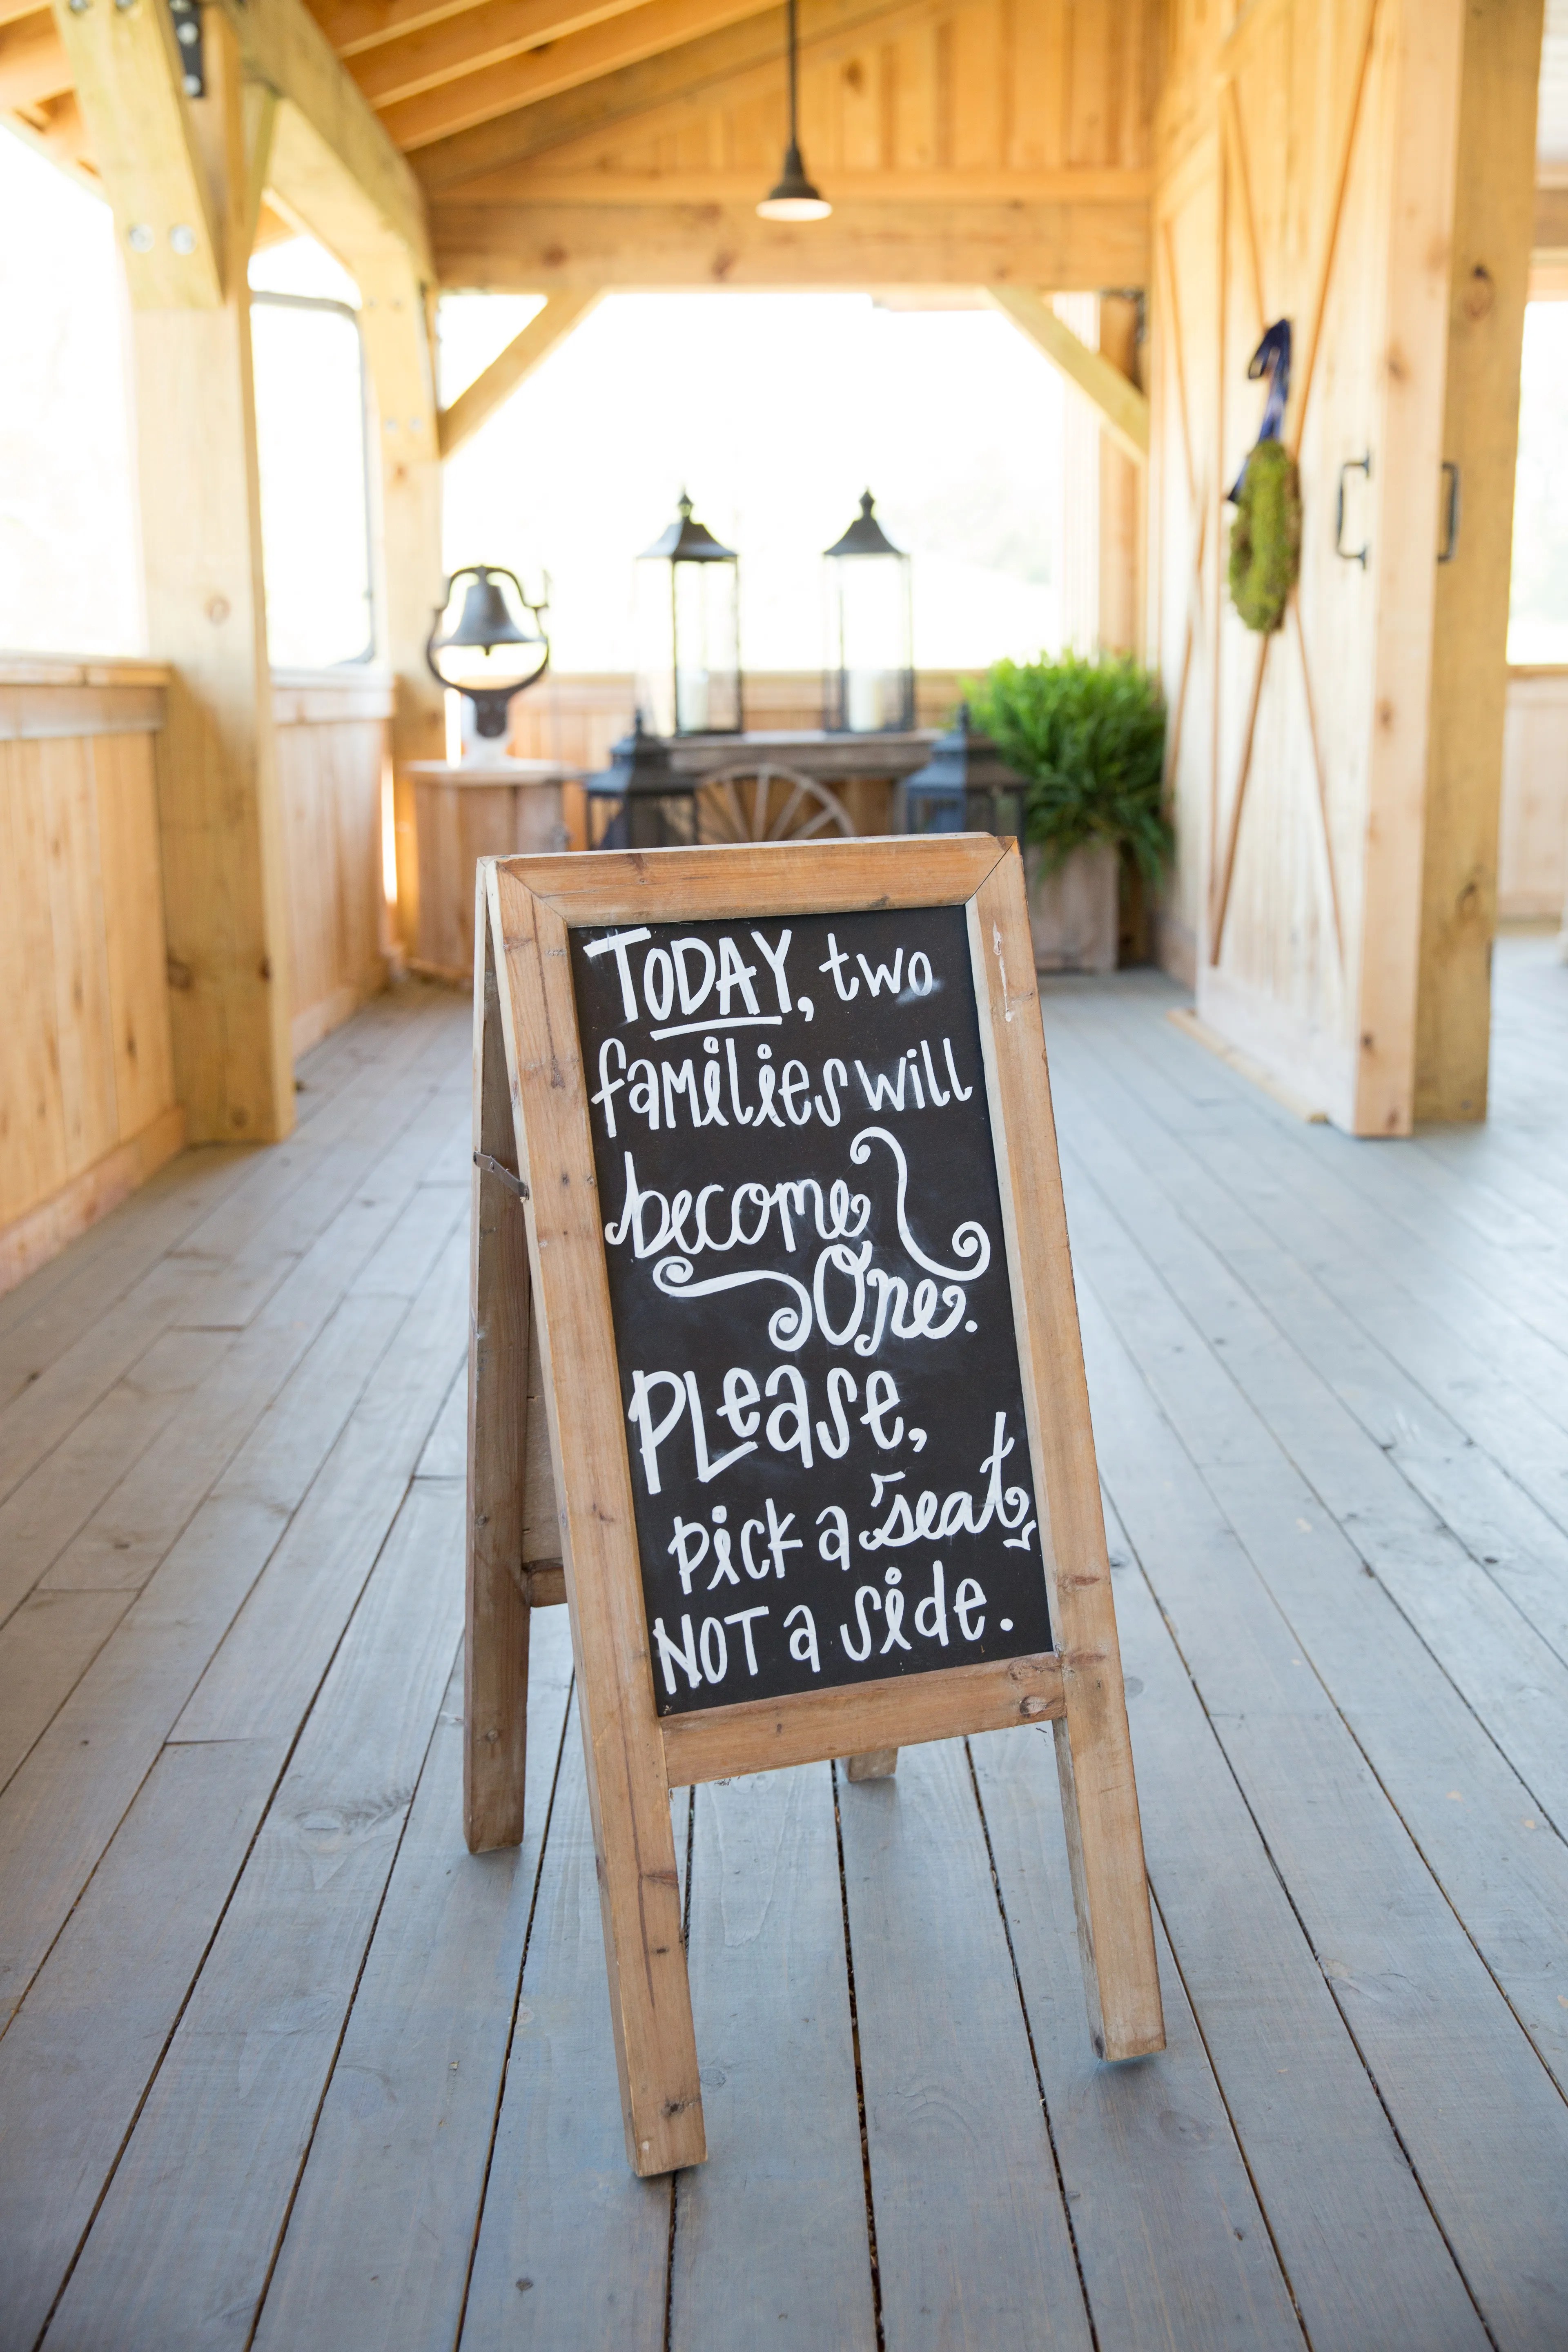 TODAY, two
families will
become
One.
PLease,
pick a seat,
NOT a side.